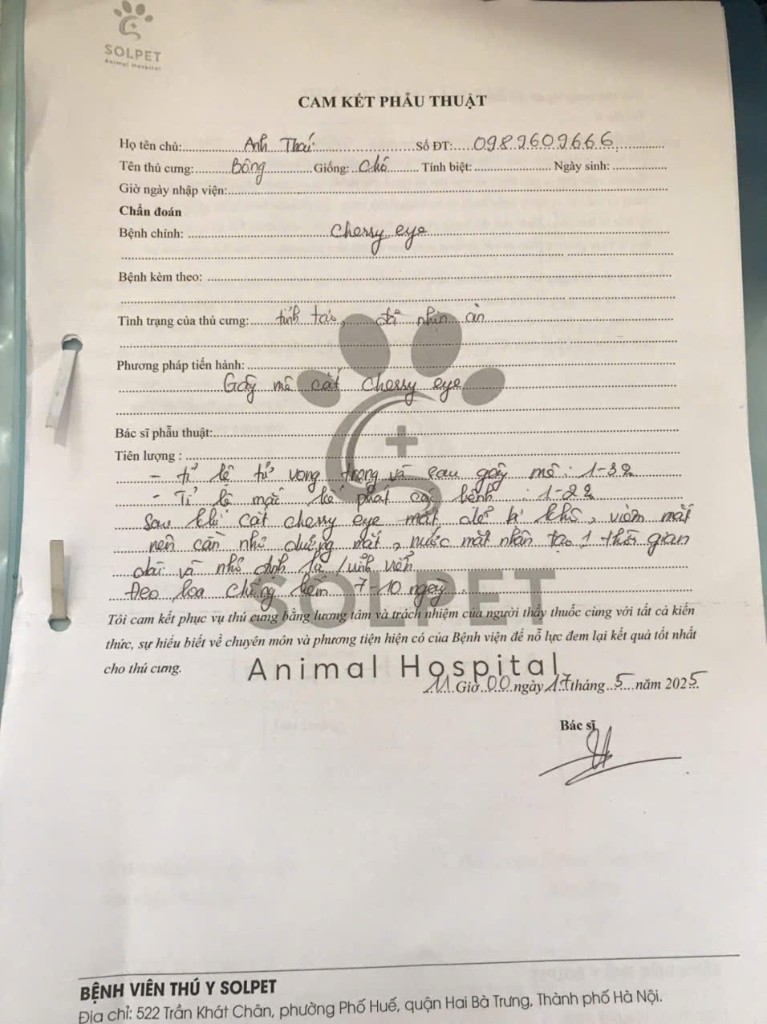 SOLPET
Animal Hospital
CAM KẾT PHẪU THUẬT
Họ tên chủ: Anh Thái Số ĐT: 0989609666
Tên thú cưng: Bông Giống: Chó Tính biệt: Ngày sinh:
Giờ ngày nhập viện:
Chẩn đoán
Bệnh chính: Cherry eye
Bệnh kèm theo:
Tình trạng của thú cưng: tỉnh táo, đã nhịn ăn
Phương pháp tiến hành:
Gây mê cắt cherry eye
Bác sĩ phẫu thuật:
Tiên lượng :
- tỉ lệ tử vong trong và sau gây mê : 1-3%
- Tỉ lệ mắc kế phát các bệnh : 1-2%
Sau khi cắt cherry eye mắt dễ bị khô, viêm mắt
nên cần nhỏ dưỡng mắt, nước mắt nhân tạo 1 thời gian
dài và nhỏ định kỳ / vĩnh viễn
Đeo loa chống liếm 7-10 ngày
Tôi cam kết phục vụ thú cưng bằng lương tâm và trách nhiệm của người thầy thuốc cùng với tất cả kiến
thức, sự hiểu biết về chuyên môn và phương tiện hiện có của Bệnh viện để nỗ lực đem lại kết quả tốt nhất
cho thú cưng.
SOLPET
Animal Hospital
11 Giờ 00 ngày 17 tháng 5 năm 2025
Bác sĩ
BỆNH VIÊN THÚ Y SOLPET
Địa chỉ: 522 Trần Khát Chân, phường Phố Huế, quận Hai Bà Trưng, Thành phố Hà Nội.